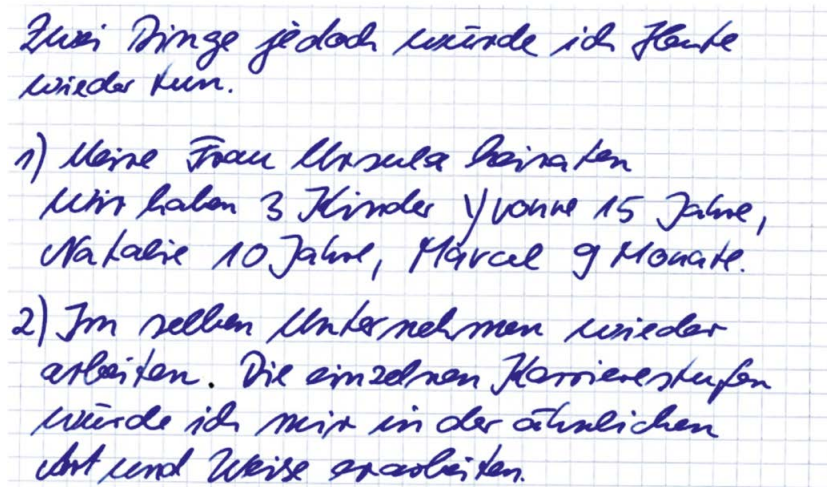 Zwei Dinge jedoch würde ich Heute
wieder tun.
1) Meine Frau Ursula heiraten
Wir haben 3 Kinder Yvonne 15 Jahre,
Natalie 10 Jahre, Marcel 9 Monate.
2) Im selben Unternehmen wieder
arbeiten. Die einzelnen Karrierestufen
würde ich mir in der ähnlichen
Art und Weise erarbeiten.